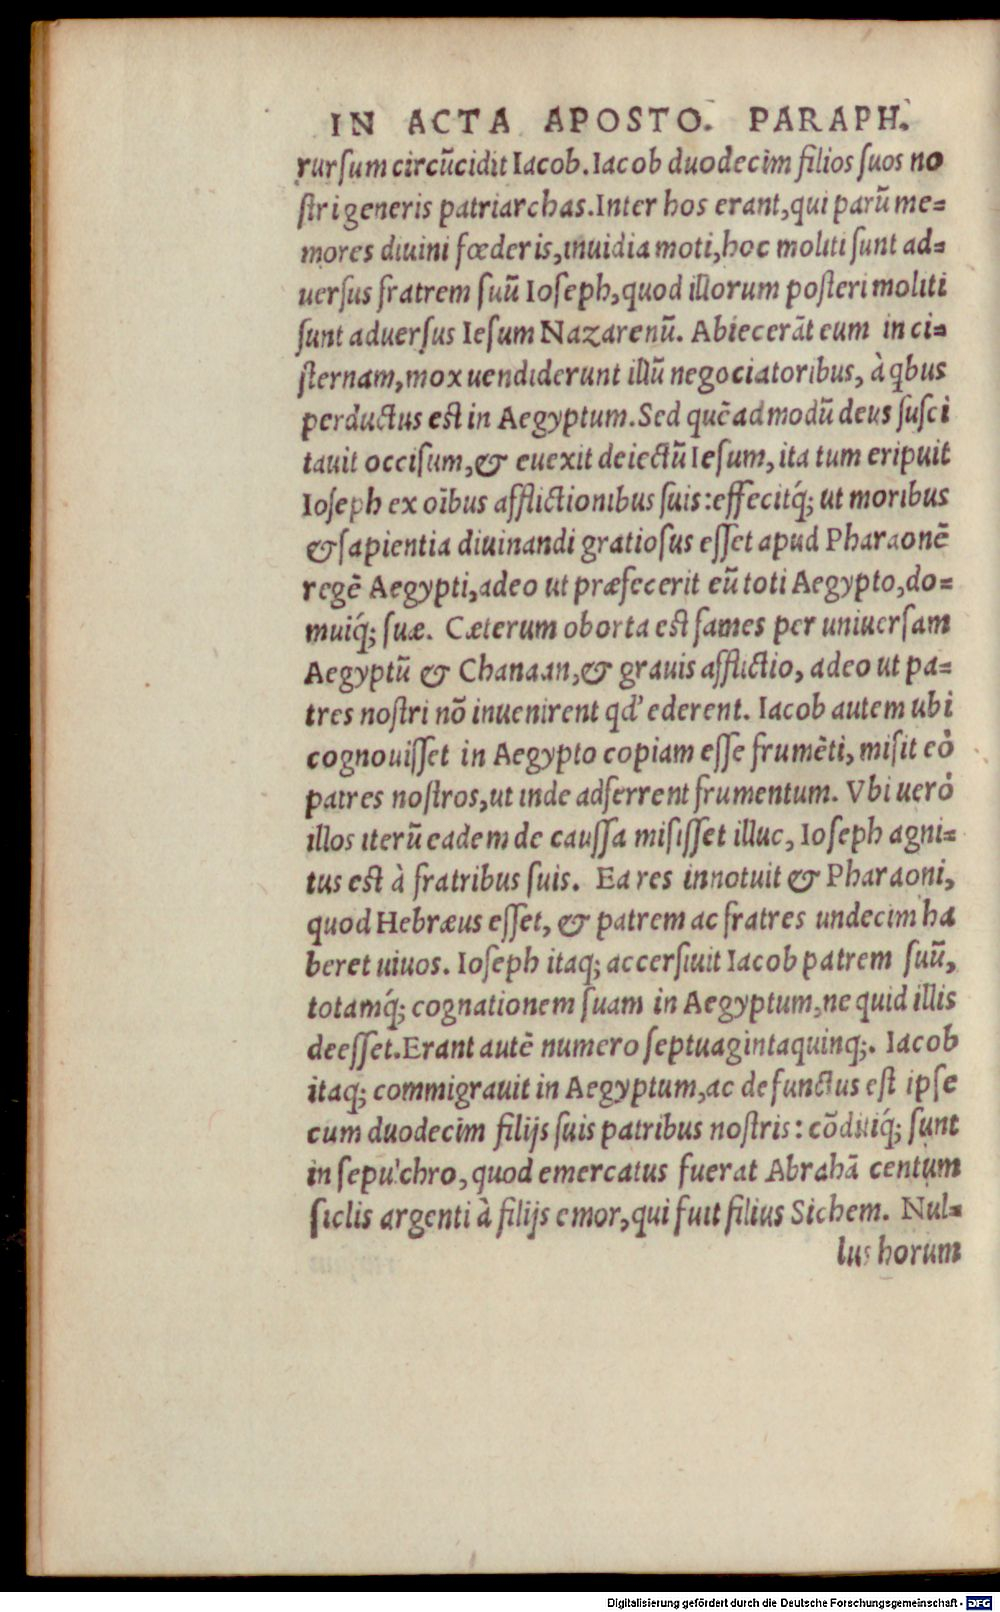 IN ACTA APOSTO. PARAPH.
rursum circũcidit Iacob. Iacob duodecim filios suos no
stri generis patriarchas. Inter hos erant, qui parũ me=
mores diuini fœderis, inuidia moti, hoc moliti sunt ad=
uersus fratrem suũ Ioseph, quod illorum posteri moliti
sunt aduersus Iesum Nazarenũ. Abiecerãt eum in ci=
sternam, mox uendiderunt illũ negociatoribus, à qbus
perductus est in Aegyptum. Sed quẽadmodũ deus susci
tauit occisum, & euexit deiectũ Iesum, ita tum eripuit
Ioseph ex oĩbus afflictionibus suis: effecitq́; ut moribus
& sapientia diuinandi gratiosus esset apud Pharaonẽ
regẽ Aegypti, adeo ut præfecerit eũ toti Aegypto, do=
muiq́; suæ. Cæterum oborta est fames per uniuersam
Aegyptũ & Chanaan, & grauis afflictio, adeo ut pa=
tres nostri nõ inuenirent qd' ederent. Iacob autem ubi
cognouisset in Aegypto copiam esse frumẽti, misit eò
patres nostros, ut inde adferrent frumentum. Vbi uerò
illos iterũ eadem de caussa misisset illuc, Ioseph agni=
tus est à fratribus suis. Ea res innotuit & Pharaoni,
quod Hebræus esset, & patrem ac fratres undecim ha
beret uiuos. Ioseph itaq; accersiuit Iacob patrem suũ,
totamq́; cognationem suam in Aegyptum, ne quid illis
deesset. Erant autẽ numero septuagintaquinq;. Iacob
itaq; commigrauit in Aegyptum, ac defunctus est ipse
cum duodecim filijs suis patribus nostris: cõditiq́; sunt
in sepulchro, quod emercatus fuerat Abrahã centum
siclis argenti à filijs emor, qui fuit filius Sichem. Nul=
lus horum
Digitalisierung gefördert durch die Deutsche Forschungsgemeinschaft - DFG